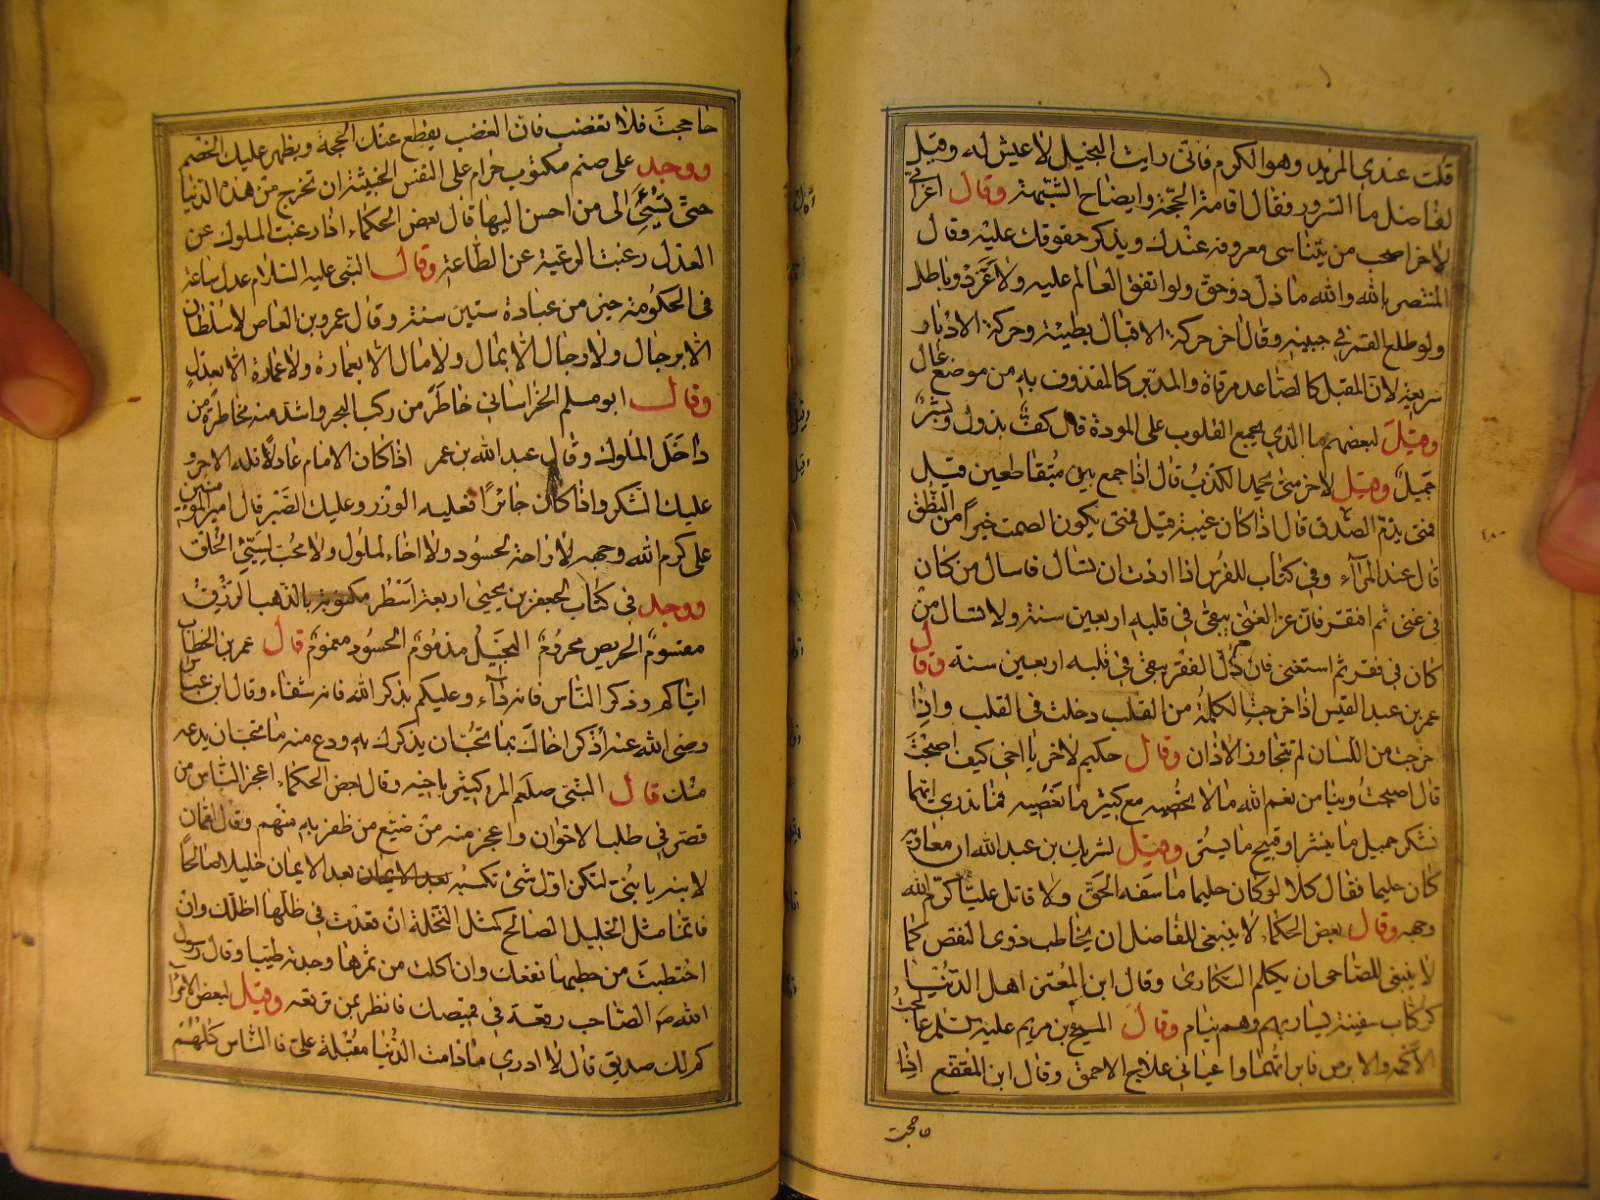 قلت عندي المزيد وهو الكرم فاني رايت البخيل لا عيش له وقيل
لفاضل ما السرور فقال اقامة الحجّة وايضاح الشبهة وقال اعرابي
لاخر اصحب من يتناسى معروفه عندك ويذكر حقوقك عليه وقال
المنتصر بالله والله ما ذل ذو حق ولو اتفق العالم عليه ولا عز ذو باطل
ولو طلع القمر في جبينه وقال اخر حركة الاقبال بطيئة وحركة الادبار
سريعة لان المقبل كالصاعد مرقاة والمدبر كالمقذوف به من موضع عال
وقيل لبعضهم ما الذي يجمع القلوب على المودة قال كفّ بذول وبشر
جميل وقيل لاخر متى يحمد الكذب قال اذا جمع بين متقاطعين قيل
فمتى يذم الصدق قال اذا كان غيبة قيل فمتى يكون الصمت خيرا من النطق
قال عند المرآء وفي كتاب للفرس اذا اردت ان تسال فاسال من كان
في غنى ثم افتقر فان عز الغنى يبقى في قلبه اربعين سنة ولا تسال من
كان في فقر ثم استغنى فان ذلّ الفقر يبقى في قلبه اربعين سنة وقال
عمر بن عبد القيس اذا خرجت الكلمة من القلب دخلت في القلب واذا
خرجت من اللسان لم تتجاوز الاذان وقال حكيم لاخر يا اخي كيف اصبحت
قال اصبحت وبنا من نعم الله ما لا نحصيه مع كثير ما نعصيه فما ندري ايهما
نشكر جميل ما ينشر او قبيح ما يستر وقيل لشريك بن عبد الله ان معاوية
كان حليما فقال كلا لو كان حليما ما سفه الحق ولا قاتل عليّا كرّم الله
وجهه وقال بعض الحكماء لا ينبغي للفاضل ان يخاطب ذوى النقص كما
لا ينبغي للصاحي ان يكلم السكارى وقال ابن المعتز اهل الدنيا
كركاب سفينة يسار بهم وهم نيام وقال المسيح بن مريم عليه السلم عالجت
الاكمه والابرص فابراتهما واعياني علاج الاحمق وقال ابن المقفع اذا
حاججت
حاججت فلا تغضب فان الغضب يقطع عنك الحجة ويظهر عليك الخصم
ووجد على صنم مكتوب حرام على النفس الخبيثة ان تخرج من هذه الدنيا
حتى تسئ الى من احسن اليها قال بعض الحكماء اذا رغبت الملوك عن
العدل رغبت الرعية عن الطاعة وقال النبي عليه السلام عدل ساعة
في الحكومة خير من عبادة ستين سنة وقال عمرو بن العاص لا سلطان
الا برجال ولا رجال الا بمال ولا مال الا بعمارة ولا عمارة الا بعدل
وقال ابو مسلم الخراساني خاطر من ركب البحر واشد منه مخاطرة من
داخل الملوك وقال عبد الله بن عمر اذا كان الامام عادلا فله الاجر و
عليك الشكر واذا كان جائرا فعليه الوزر وعليك الصبر قال امير المؤمنين
على كرم الله وجهه لا راحة لحسود ولا اخاء لملول ولا محب لسيّئ الخلق
ووجد في كتاب لجعفر بن يحيى اربعة اسطر مكتوبة بالذهب الرزق
مقسوم الحريص محروم البخيل مذموم الحسود مغموم قال عمر بن الخطاب
اياكم وذكر الناس فانه دآء وعليكم بذكر الله فانه شفاء وقال ابن عباس
رضى الله عنه اذكر اخاك بما تحب ان يذكرك به ودع منه ما تحب ان يدعه
منك قال النبي صلعم المرء كثير باخيه وقال بعض الحكماء اعجز الناس من
قصر في طلب الاخوان واعجز منه من ضيّع من ظفر به منهم وقال لقمان
لابنه يا بنيّ لتكن اول شئ تكسبه بعد الايمان بعد الايمان خليلا صالحا
فانما مثل الخليل الصالح كمثل النخلة ان قعدت في ظلها اظلك وان
احتطبت من حطبها نفعك وان اكلت من ثمرها وجدته طيبا وقال رسول
الله صَ الصاحب رقعة في قميصك فانظر بمن ترقعه وقيل لبعض الامرا
كم لك صديق قال لا ادري ما دامت الدنيا مقبلة علىّ فالناس كلهم